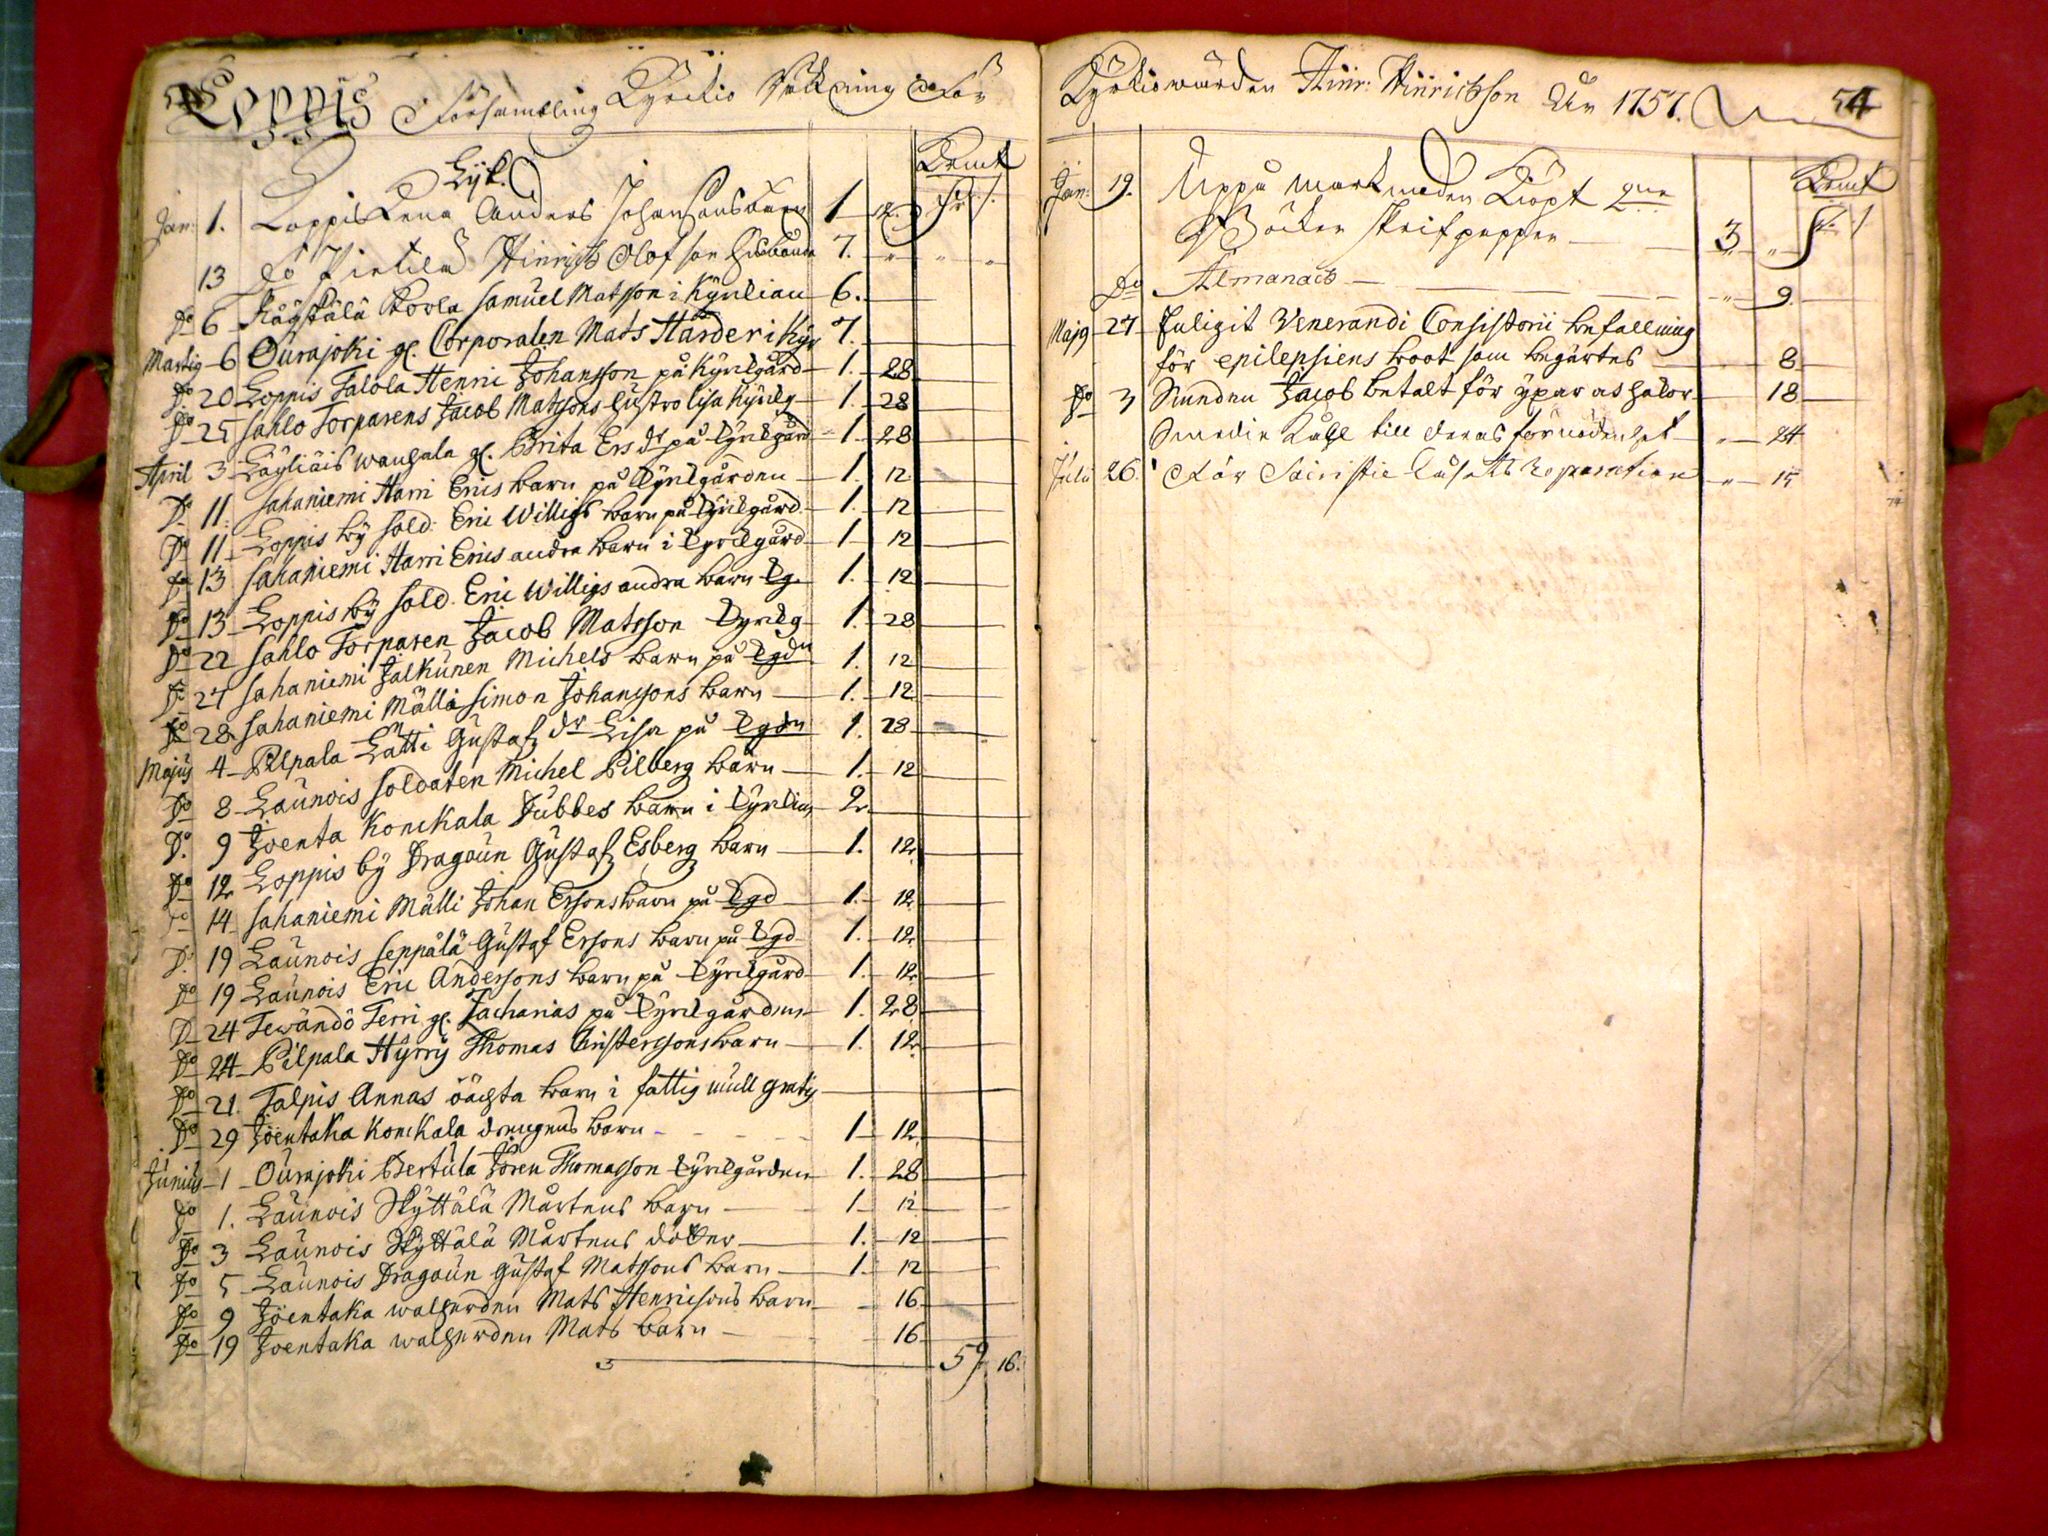 Loppis Försambling Kyrckio Räkning För
Lijk.
Kpmt
Jan: 1. Loppis Anders Johansons barn 1 12
13 Do Pietilä Hinrich Olofson 7. " " "
Do 6 Räyskälä Koola Samuel Matsson i Kyrckian 6.
Martij 6 Ourajoki gl. Corporalen Mats Harder i Kyr 7.
Do 20 Loppis Talola Henric Johansson på Kyrckgård 1. 28
Do 25 Sahlo Torparens Jacob Matssons hustro Lisa Kyrckg 1. 28
April 3 Läyliäis Wanhala gl. Brita Ers dr på Kyrckgård 1. 28
Do 11. Sahaniemi Harri Erics barn på Kyrckgården 1. 12
Do 11 Loppis by Sold. Eric Willigs barn på Kyrckgård 1. 12
Do 13 Sahaniemi Harri Erics andra barn i Kyrckgård 1 12
Do 13 Loppis by Sold. Eric Willigs andra barn Kg. 1. 12
Do 22 Sahlo Torparen Jacob Matsson Kyrckg 1. 28
Do 27 Sahaniemi Jalkunen Michels barn på Kgdn 1. 12
Do 28 Sahaniemi Mälli Simon Johanssons barn 1. 12
Majus 4 Pilpala Lätti Gustaf dr Lisa på Kgdn 1. 28
Do 8 Launois Soldaten Michel Pilberg barn 1. 12
Do 9 Joenta Konckala Jubbes barn i Kyrckian 2.
Do 12 Loppis by Dragoun Gustaf Esberg barn 1. 12
Do 14 Sahaniemi Mälli Johan Ersons barn på Kgd 1. 12
Do 19 Launois Seppälä Gustaf Ersons barn på Kgd 1. 12
Do 19 Launois Eric Anderssons barn på Kyrckgård 1. 12
Do 24 Tewändö Terri gl. Zacharias på Kyrckgården 1. 28
Do 24 Pilpala Hyrry Thomas Christerssons barn 1. 12
Do 21. Talpis Annas oächta barn i fattig mull gratis
Do 29 Joentaka Konckala drengens barn 1 12
Junius 1 Ourajoki Bertula Jören Thomasson Kyrckgården 1. 28
Do 1. Launois Skyttälä Mårtens barn 1 12
Do 3 Launois Skyttälä Mårtens dotter 1. 12
Do 5 Launois Dragoun Gustaf Matssons barn 1 12
Do 9 Joentaka walherden Mats Henricsons barn 16
Do 19 Joentaka walherden Mats barn 16
59 16.
Kyrkiowärden Hinr: Hinrichson År 1757. 54
Kpmt
Jan: 19. Uppå marknaden Kiöpt 2ne
Böcker skrifpapper 3 "
Do Almanach " 9.
Majg 27 Enligit Venerandi Consistorii befallning
för epilepsiens boot som begärtes 8
Do 3 Smeden Jacob betalt för 18
Smedie Kåhl till deras förnödenhet " 24
Julii 26. För Sacristie låsets Reparation " 15